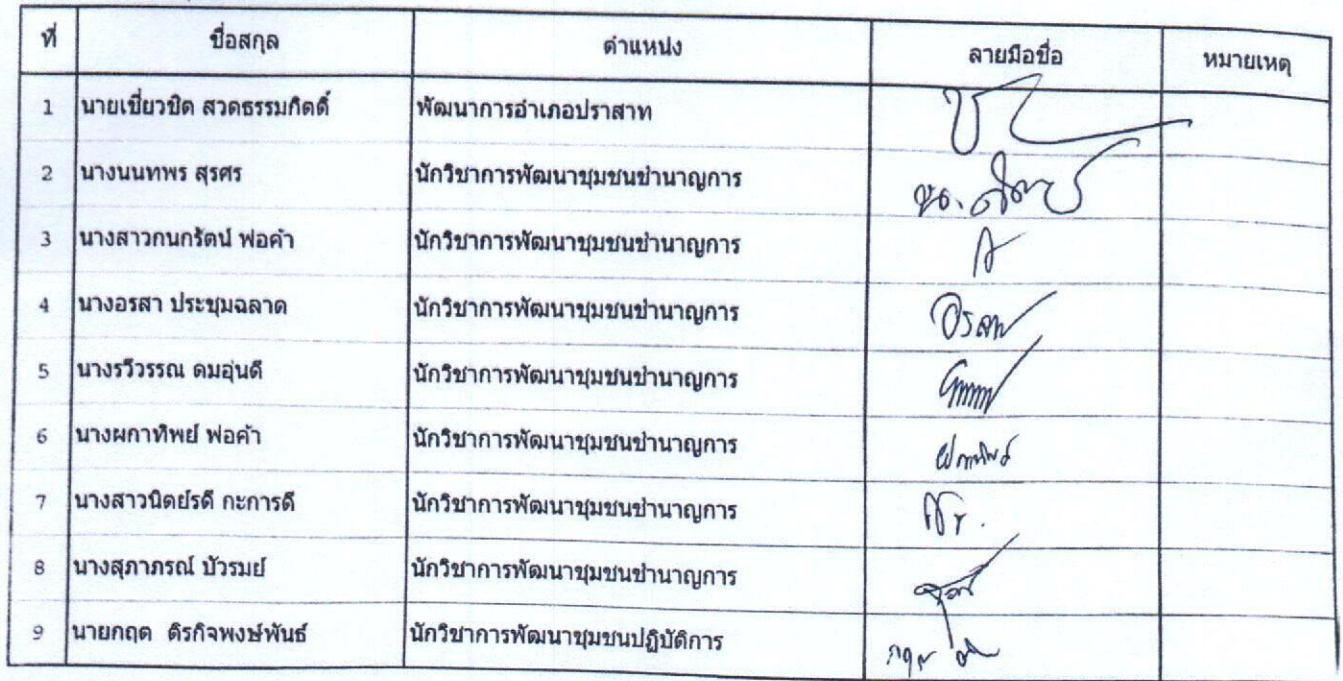 ที่ ชื่อสกุล ตำแหน่ง ลายมือชื่อ หมายเหตุ
1 นายเชี่ยวชิต สวดธรรมกิตติ์ พัฒนาการอำเภอปราสาท
2 นางนนทพร สุรศร นักวิชาการพัฒนาชุมชนชำนาญการ
3 นางสาวกนกรัตน์ พ่อค้า นักวิชาการพัฒนาชุมชนชำนาญการ
4 นางอรสา ประชุมฉลาด นักวิชาการพัฒนาชุมชนชำนาญการ อรสา
5 นางรวีวรรณ คมอุ่นดี นักวิชาการพัฒนาชุมชนชำนาญการ
6 นางผกาทิพย์ พ่อค้า นักวิชาการพัฒนาชุมชนชำนาญการ ผกาทิพย์
7 นางสาวนิตย์รดี กะการดี นักวิชาการพัฒนาชุมชนชำนาญการ
8 นางสุภาภรณ์ บัวรมย์ นักวิชาการพัฒนาชุมชนชำนาญการ
9 นายกฤต ติรกิจพงษ์พันธ์ นักวิชาการพัฒนาชุมชนปฏิบัติการ